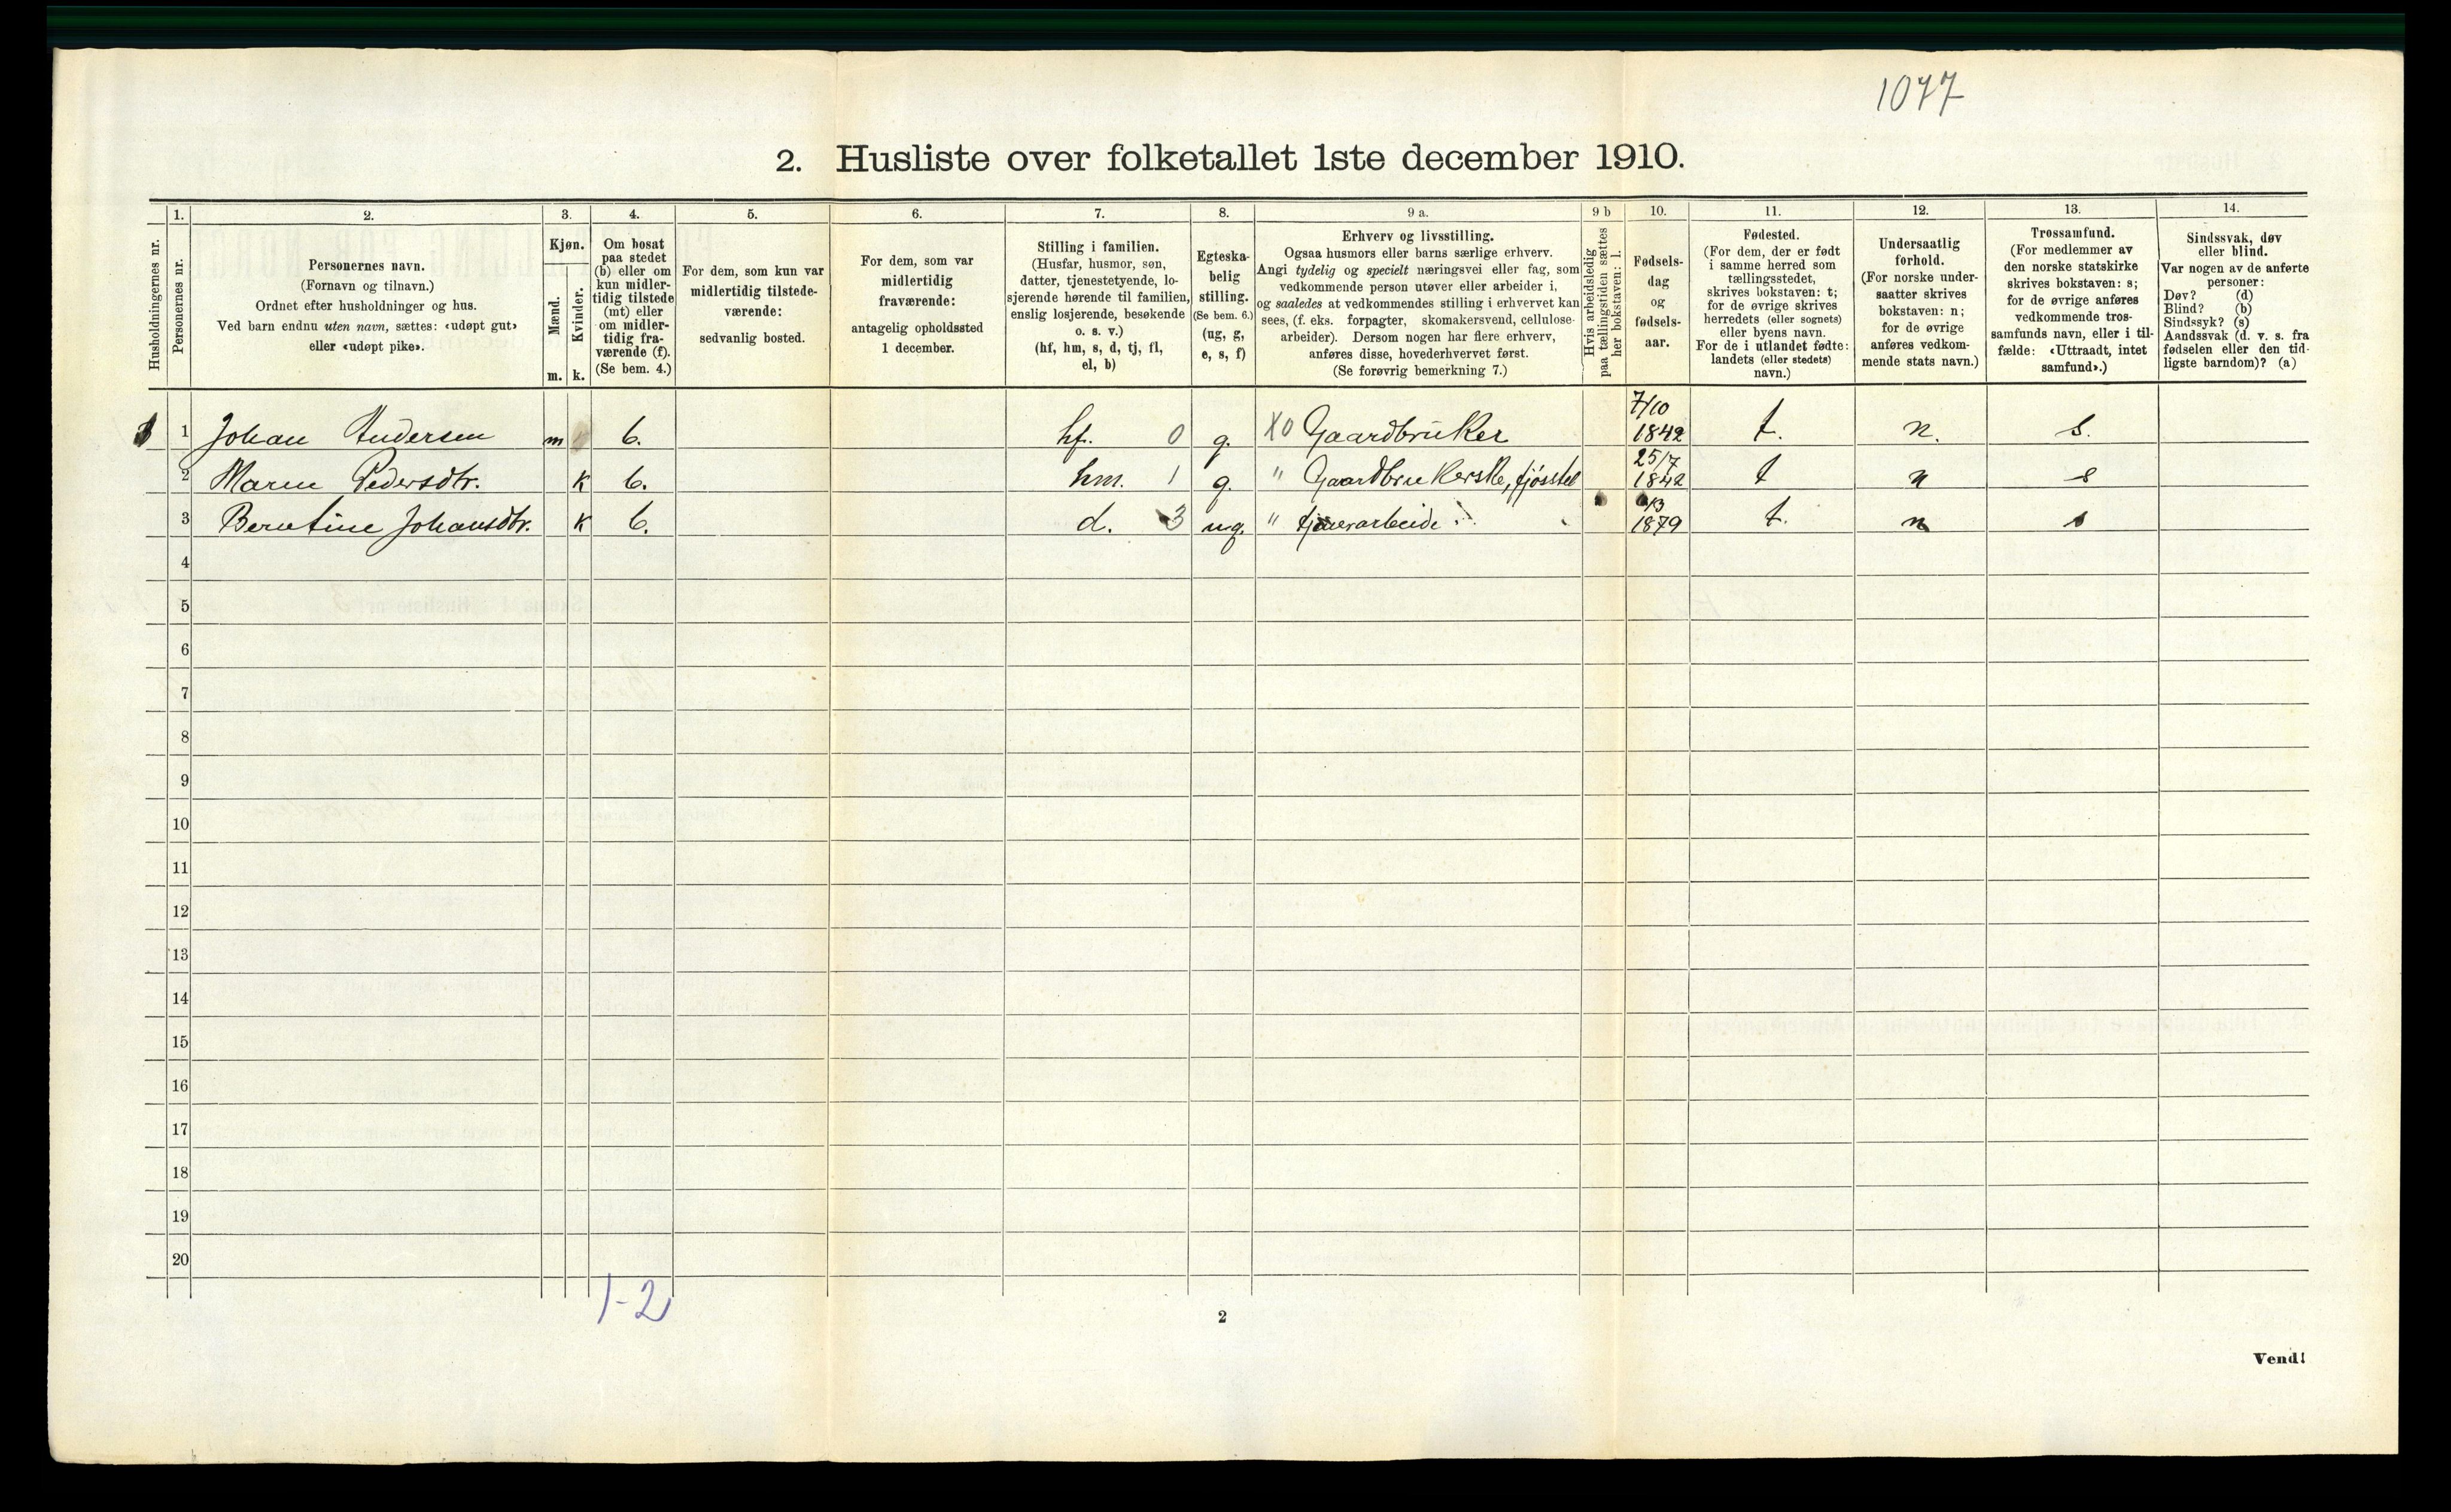 1077
2. Husliste over folketallet 1ste december 1910.
Husholdningernes nr.
1. 2. 3. 4. 5. 6. 7. 8. 9 a. 9 b 10. 11. 12. 13. 14.
Personernes nr.
Personernes navn.
(Fornavn og tilnavn.)
Ordnet efter husholdninger og hus.
Ved barn endnu uten navn, sættes: «udøpt gut»
eller «udøpt pike».
Kjøn.
Mænd.
m.
Kvinder.
k.
Om bosat
paa stedet
(b) eller om
kun midler-
tidig tilstede
(mt) eller
om midler-
tidig fra-
værende (f).
(Se bem. 4.)
For dem, som kun var
midlertidig tilstede-
værende:
sedvanlig bosted.
For dem, som var
midlertidig
fraværende:
antagelig opholdssted
1 december.
Stilling i familien.
(Husfar, husmor, søn,
datter, tjenestetyende, lo-
sjerende hørende til familien,
enslig losjerende, besøkende
o. s. v.)
(hf, hm, s, d, tj, fl,
el, b)
Egteska-
belig
stilling.
(Se bem. 6.)
(ug, g,
e, s, f)
Erhverv og livsstilling.
Ogsaa husmors eller barns særlige erhverv.
Angi tydelig og specielt næringsvei eller fag, som
vedkommende person utøver eller arbeider i,
og saaledes at vedkommendes stilling i erhvervet kan
sees, (f. eks. forpagter, skomakersvend, cellulose-
arbeider). Dersom nogen har flere erhverv,
anføres disse, hovederhvervet først.
(Se forøvrig bemerkning 7.)
Hvis arbeidsledig
paa tællingstiden sættes
her bokstaven: l.
Fødsels-
dag
og
fødsels-
aar.
Fødested.
(For dem, der er født
i samme herred som
tællingsstedet,
skrives bokstaven: t;
for de øvrige skrives
herredets (eller sognets)
eller byens navn.
For de i utlandet fødte:
landets (eller stedets)
navn.)
Undersaatlig
forhold.
(For norske under-
saatter skrives
bokstaven: n;
for de øvrige
anføres vedkom-
mende stats navn.)
Trossamfund.
(For medlemmer av
den norske statskirke
skrives bokstaven: s;
for de øvrige anføres
vedkommende tros-
samfunds navn, eller i til-
fælde: «Uttraadt, intet
samfund».)
Sindssvak, døv
eller blind.
Var nogen av de anførte
personer:
Døv? (d)
Blind? (b)
Sindssyk? (s)
Aandssvak (d. v. s. fra
fødselen eller den tid-
ligste barndom)? (a)
1 Johan Andersen m b. hf. 0 g. X0 Gaardbruker 7/10 1842 t. n. s.
2 Maren Pedersdtr. k b. hm. 1 g. " Gaardbrukerske, fjøsstel 25/7 1842 t n s
3 Berntine Johansdtr. k b. d. 3 ug. " 1879 t. n s
4
5
6
7
8
9
10
11
12
13
14
15
16
17
18
19
20
1-2
2
Vend!